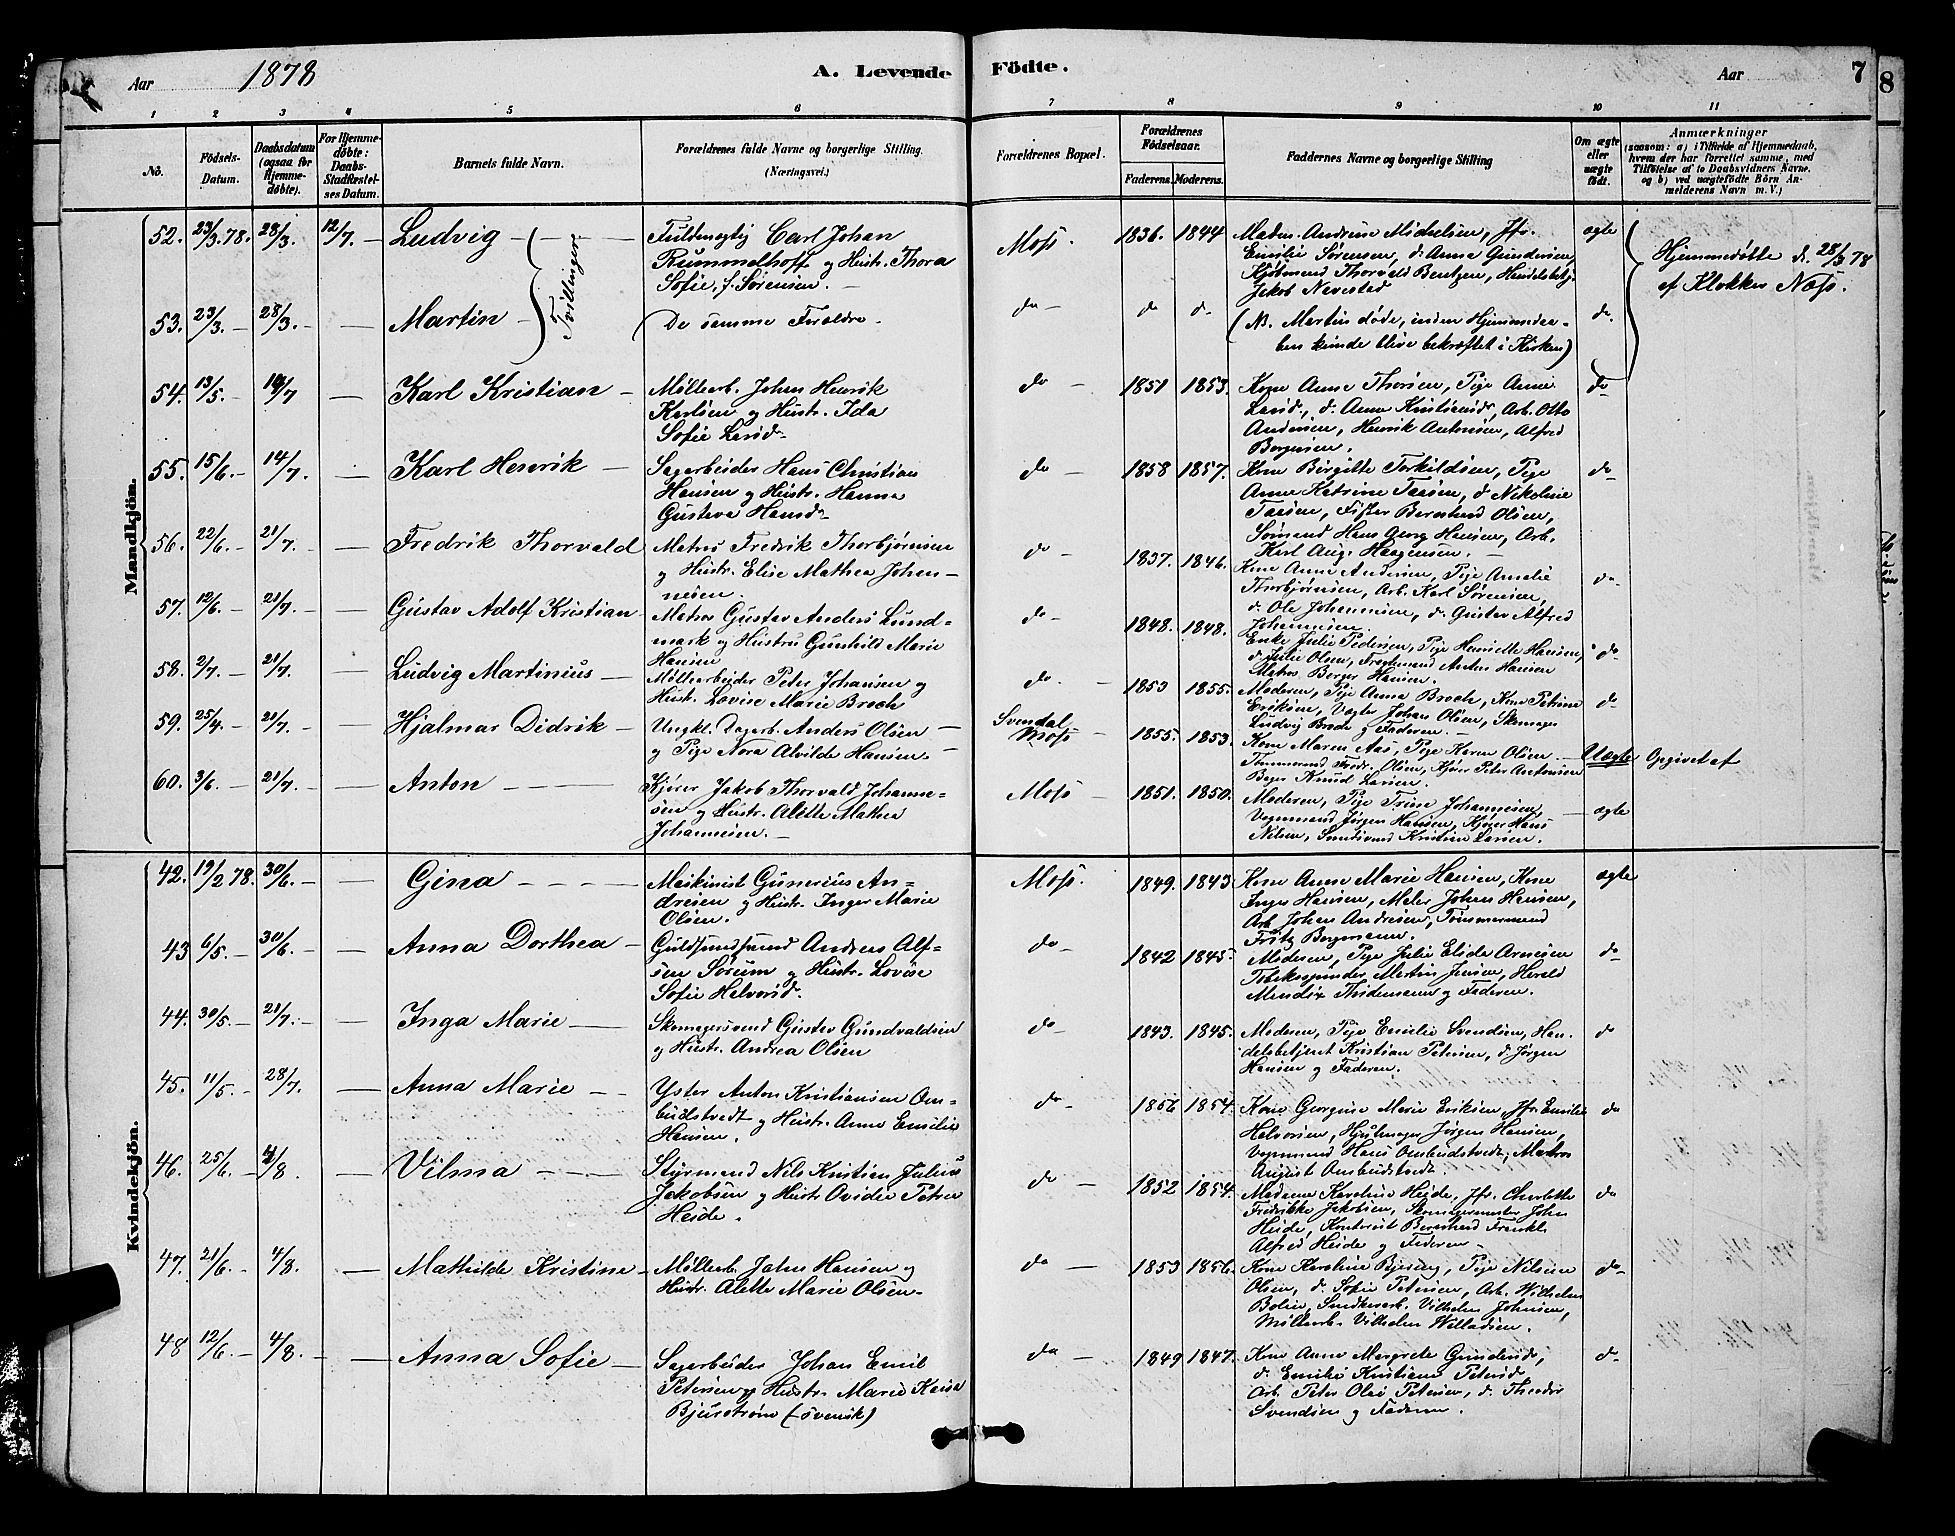 Aar 1878 A. Levende Födte. Aar 7
8
1 2 3 4 5 6 7 8 9 10 11
No.
Födsels-Datum.
Daabsdatum (ogsaa for Hjemmedøbte).
For Hjemmedøbte: Daabs-Stadfæstelses Datum.
Barnets fulde Navn.
Forældrenes fulde Navne og borgerlige Stilling. (Næringsvei.)
Forældrenes Bopæl.
Forældrenes Födselsaar.
Faderens. Moderens.
Faddernes Navne og borgerlige Stilling
Om ægte eller uægte födt.
Anmærkninger
(saasom: a) i Tilfælde af Hjemmedaab, hvem der har forrettet samme, med Tilföielse af to Daabsvidners Navne, og b) ved uægtefödte Börn Anmelderens Navn m. V.)
Mandkjön.
52. 23/3.78. 28/3. 12/7. Ludvig
Tvillinger
Fuldmægtig Carl Johan
Rummelhoff og Hustr. Thora
Sofie, f. Sørensen.
Moss. 1836. 1844
Madm. Andrine Michelsen, Jfr.
Emilie Sørensen, d. Anna Gundersen,
Kjøbmand Thorvald Bentzen, Handelsbetj.
Jakob Navestad
ægte
Hjemmedøbte d. 28/3 78
af Klokker Næss.
53. 23/3. 28/3. Martin
De samme Forældre.
do do do
(NB. Martin døde, inden Hjemmedaa-
ben kunde blive bekræftet i Kirken)
do.
54. 13/5. 14/7 Karl Kristian
Møllearb. Johan Henrik
Karlsen og Hustr. Ida
Sofie Larsd.
do 1851 1853.
Kone Anne Thorsen, Pige Anne
Larsd., d. Anne Kristiansd., Arb. Otto
Andersen, Henrik Antonsen, Alfred
Borgersen.
do
55. 15/6. 14/7. Karl Henrik
Sagarbeider Hans Christian
Hansen og Hustr. Hanna
Gustava Hansd.
do 1858 1857.
Kone Birgitte Torkildsen, Pige
Anne Katrine Taasen, d. Nikoline
Taasen, Fisker Bernhard Olsen,
Sømand Hans Georg Hansen, Arb.
Karl Aug. Haagensen.
do
56. 22/6. 21/7. Fredrik Thorvald
Matros Fredrik Thorbjørnsen
og Hustr. Elise Mathea Johan-
nesen.
do 1837. 1846.
Kone Anne Andersen, Pige Amalie
Thorbjørnsen, Arb. Karl Sørensen,
d. Ole Johannesen, d. Gustav Alfred
Johannesen.
do
57. 12/6. 21/7. Gustav Adolf Kristian
Matros Gustav Anders Lund-
mark og Hustru Gunhild Marie
Hansen
do 1848. 1848.
Enke Julie Pedersen, Pige Henriette Hansen,
d. Julie Olsen, Anton Hansen
Matros Berger Hansen.
do
58. 2/7. 21/7. Ludvig Martinius
Møllearbeider Peter Johansen og
Hustr. Lovise Marie Broch
do. 1853 1855.
Moderen, Pige Anna Broch, Kone Petrine
Eriksen, Vagter Johan Olsen, Skomager
Ludvig Broch og Faderen.
do
59. 25/4. 21/7. Hjalmar Didrik
Ungkl. Dagarb. Anders Olsen
og Pige Nora Alvilde Hansen.
Svendal
Moss 1855. 1853.
Kone Maren Aas, Pige Karen Olsen
Tømmermand Fredr. Olsen, Kjører Peter Antonsen
Bager Knud Larsen.
Uægte Opgivet af
60. 3/6. 21/7. Anton
Kjører Jakob Thorvald Johanne-
sen og Hustr. Alette Mathea
Johannesen.
Moss 1851. 1850.
Moderen, Pige Trine Johannesen,
Vognmand Jørgen Hansen, Kjører Hans
Nilsen, Kristian Larsen.
ægte
Kvindekjön.
42. 19/2 78. 30/6. Gina
Maskinist Gunerius An-
dresen og Hustr. Inger Marie
Olsen.
Moss. 1849. 1843
Kone Anne Marie Hansen, Kone
Inger Hansen, Maler Johan Hansen,
Arb. Johan Andresen, Tømmermand
Fritz Borgersen.
ægte
43 6/5. 30/6. Anna Dorthea
Guldsmedsvend Andreas Alf-
sen Sørum og Hustr. Lovise
Sofie Halvorsd.
do 1842 1845.
Moderen, Pige Julie Elida Arnesen
Tobaksspinder Martin Jensen, Harald
Mendix Thidemann og Faderen.
do
44. 30/5. 21/7. Inga Marie
Skomagersvend Gustav Gundvaldsen
og Hustr. Andrea Olsen
do 1843. 1845.
Moderen, Pige Emilie Svendsen, Han-
delsbetjent Kristian Petersen, d. Jørgen
Hansen og Faderen.
do
45. 11/5. 28/7. Anna Marie
Anton Kristiansen Om-
budstvedt og Hustr. Anne Emilie
Hansen.
do 1856 1854.
Kone Georgine Marie Eriksen, Jfr. Emilie
Halvorsen, Hjulmager Jørgen Hansen,
Vognmand Hans Ombudstvedt, Matros
August Ombudstvedt.
do
46. 25/6. 4/8. Vilma
Styrmand Nils Kristian Julius
Jakobsen og Hustr. Ovidie Petrea
Heide.
do 1852 1854.
Madame Karoline Heide, Jfr. Charlotte
Fredrikke Jakobsen, Skomagermester John
Heide, Kontorist Bernhard Frenkel
Alfred Heide og Faderen
do
47. 21/6. 4/8. Mathilde Kristine
Møllearb. Johan Hansen og
Hustr. Alette Marie Olsen.
do 1853 1856.
Kone Karoline Bjering, Pige Nilsine
Olsen, d. Sofie Petersen, Arb. Wilhelm
Bolin, Vilhelm Johnsen,
Møllearb. Vilhelm Willadsen.
do
48 12/6. 4/8. Anna Sofie
Sagarbeider Johan Emil
Petersen og Hustr. Marie Kaisa
Bjurstrøm (svensk)
do 1849 1847.
Kone Anne Margrete Gundersd.,
d. Emilie Kristiane Petersd.
Arb. Peter Olai Petersen, d. Theodor
Svendsen og Faderen.
do